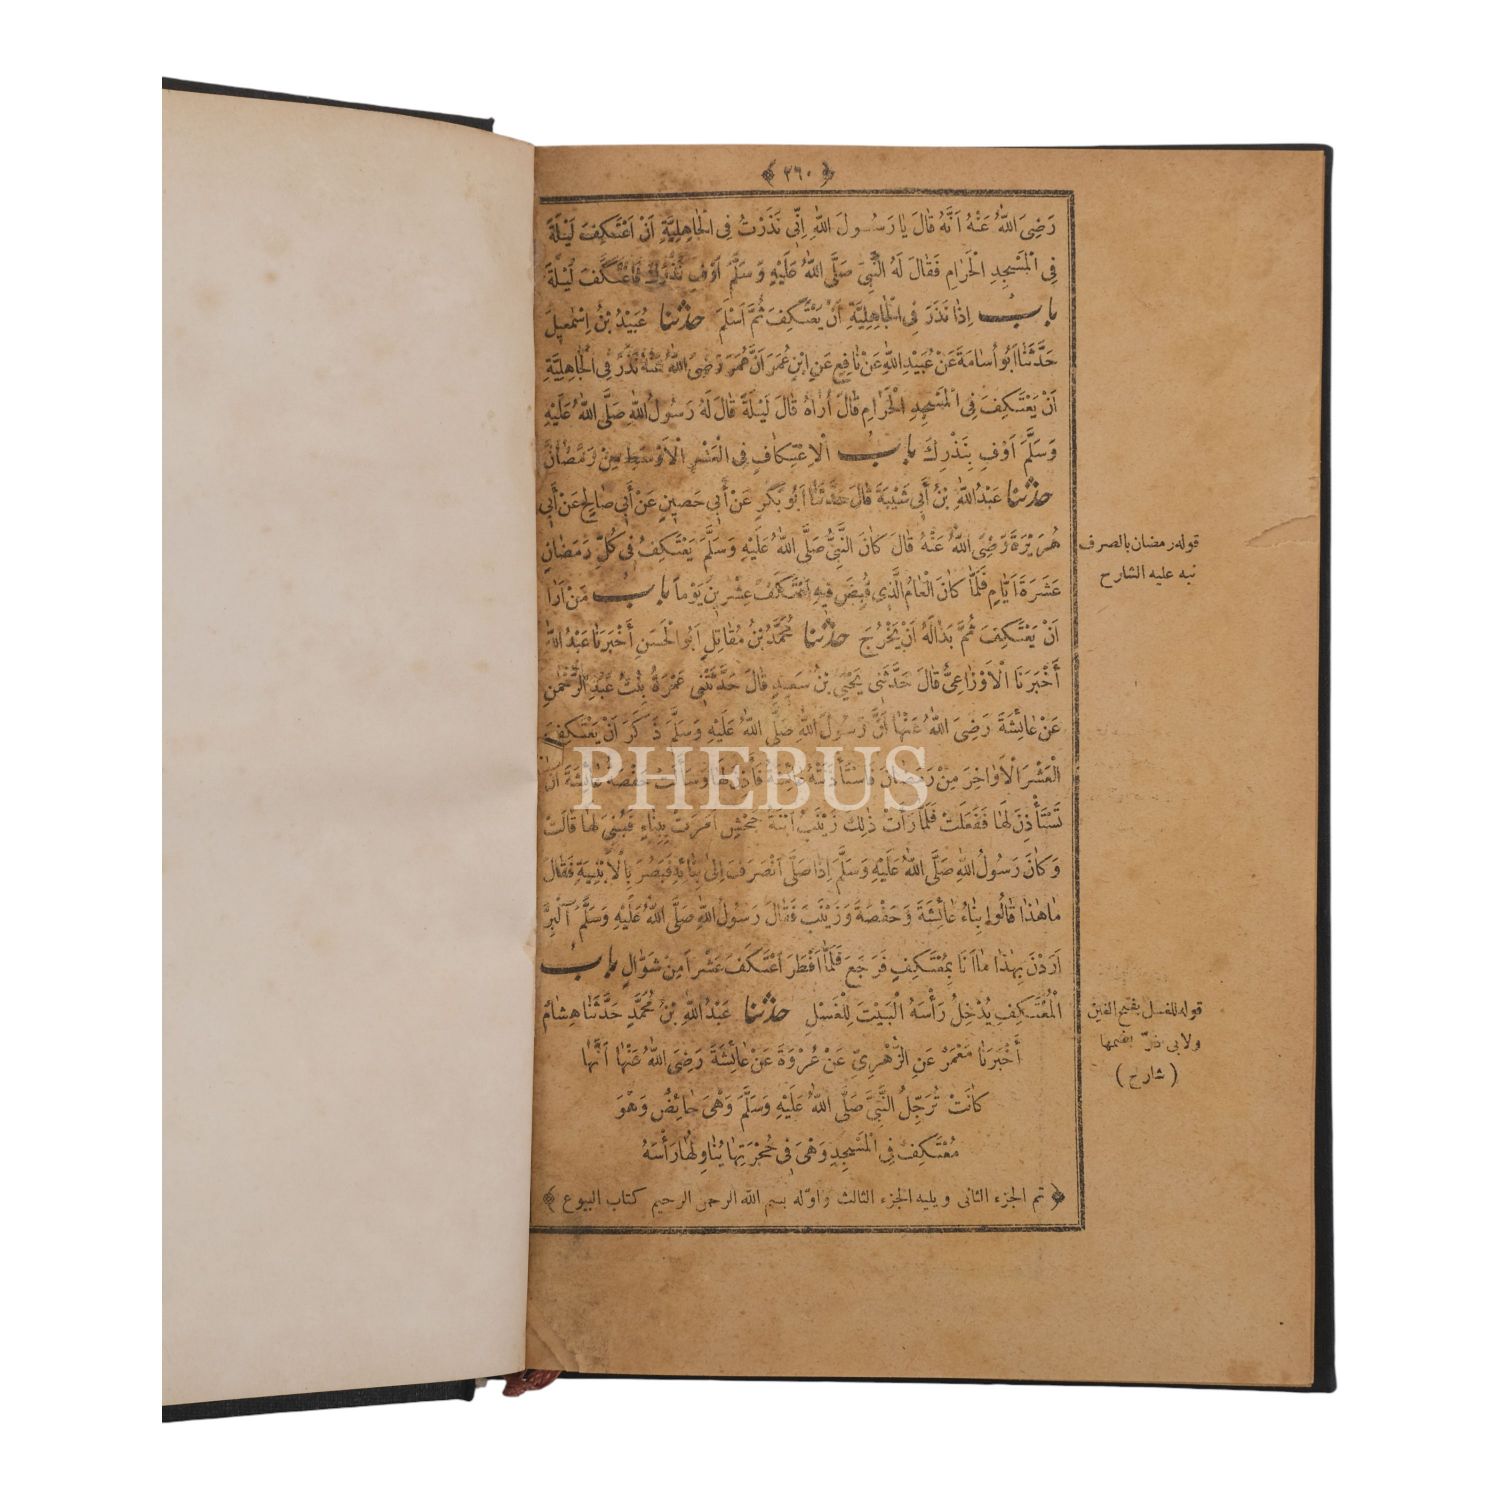 ﴿ ٢٦٠ ﴾
رَضِىَ اللّٰهُ عَنْهُ اَنَّهُ قَالَ يَا رَسُولَ اللّٰهِ اِنِّى نَذَرْتُ فِى الْجَاهِلِيَّةِ اَنْ اَعْتَكِفَ لَيْلَةً
فِى الْمَسْجِدِ الْحَرَامِ فَقَالَ لَهُ النَّبِىُّ صَلَّى اللّٰهُ عَلَيْهِ وَسَلَّمَ اَوْفِ نَذْرَكَ فَاعْتَكَفَ لَيْلَةً
بابٌ اِذَا نَذَرَ فِى الْجَاهِلِيَّةِ اَنْ يَعْتَكِفَ ثُمَّ اَسْلَمَ حدثنا عُبَيْدُ بْنُ اِسْمٰعِيلَ
حَدَّثَنَا اَبُو اُسَامَةَ عَنْ عُبَيْدِ اللّٰهِ عَنْ نَافِعٍ عَنِ ابْنِ عُمَرَ اَنَّ عُمَرَ رَضِىَ اللّٰهُ عَنْهُ نَذَرَ فِى الْجَاهِلِيَّةِ
اَنْ يَعْتَكِفَ فِى الْمَسْجِدِ الْحَرَامِ قَالَ اُرَاهُ قَالَ لَيْلَةً قَالَ لَهُ رَسُولُ اللّٰهِ صَلَّى اللّٰهُ عَلَيْهِ
وَسَلَّمَ اَوْفِ بِنَذْرِكَ بابُ الْاِعْتِكَافِ فِى الْعَشْرِ الْاَوْسَطِ مِنْ رَمَضَانَ
حدثنا عَبْدُ اللّٰهِ بْنُ أَبِى شَيْبَةَ قَالَ حَدَّثَنَا اَبُو بَكْرٍ عَنْ أَبِى حَصِينٍ عَنْ أَبِى صَالِحٍ عَنْ أَبِى
هُرَيْرَةَ رَضِىَ اللّٰهُ عَنْهُ قَالَ كَانَ النَّبِىُّ صَلَّى اللّٰهُ عَلَيْهِ وَسَلَّمَ يَعْتَكِفُ فِى كُلِّ رَمَضَانٍ
عَشَرَةَ اَيَّامٍ فَلَمَّا كَانَ الْعَامُ الَّذِى قُبِضَ فِيهِ اعْتَكَفَ عِشْرِينَ يَوْماً بابُ مَنْ اَرَادَ
اَنْ يَعْتَكِفَ ثُمَّ بَدَا لَهُ اَنْ يَخْرُجَ حدثنا مُحَمَّدُ بْنُ مُقَاتِلٍ اَبُو الْحَسَنِ أَخْبَرَنَا عَبْدُ اللّٰهِ
أَخْبَرَنَا الْاَوْزَاعِىُّ قَالَ حَدَّثَنِى يَحْيَى بْنُ سَعِيدٍ قَالَ حَدَّثَتْنِى عَمْرَةُ بِنْتُ عَبْدِ الرَّحْمٰنِ
عَنْ عَائِشَةَ رَضِىَ اللّٰهُ عَنْهَا اَنَّ رَسُولَ اللّٰهِ صَلَّى اللّٰهُ عَلَيْهِ وَسَلَّمَ ذَكَرَ اَنْ يَعْتَكِفَ
الْعَشْرَ الْاَوَاخِرَ مِنْ رَمَضَانَ فَاسْتَأْذَنَتْهُ عَائِشَةُ فَاَذِنَ لَهَا وَسَأَلَتْ حَفْصَةُ عَائِشَةَ اَنْ
تَسْتَأْذِنَ لَهَا فَفَعَلَتْ فَلَمَّا رَأَتْ ذٰلِكَ زَيْنَبُ ابْنَةُ جَحْشٍ اَمَرَتْ بِبِنَاءٍ فَبُنِىَ لَهَا قَالَتْ
وَكَانَ رَسُولُ اللّٰهِ صَلَّى اللّٰهُ عَلَيْهِ وَسَلَّمَ اِذَا صَلَّى انْصَرَفَ اِلَى بِنَائِهِ فَبَصُرَ بِالْاَبْنِيَةِ فَقَالَ
مَا هٰذَا قَالُوا بِنَاءُ عَائِشَةَ وَحَفْصَةَ وَزَيْنَبَ فَقَالَ رَسُولُ اللّٰهِ صَلَّى اللّٰهُ عَلَيْهِ وَسَلَّمَ آلْبِرَّ
اَرَدْنَ بِهٰذَا مَا اَنَا بِمُعْتَكِفٍ فَرَجَعَ فَلَمَّا اَفْطَرَ اعْتَكَفَ عَشْراً مِنْ شَوَّالٍ بابُ
الْمُعْتَكِفِ يُدْخِلُ رَأْسَهُ الْبَيْتَ لِلْغَسْلِ حدثنا عَبْدُ اللّٰهِ بْنُ مُحَمَّدٍ حَدَّثَنَا هِشَامٌ
أَخْبَرَنَا مَعْمَرٌ عَنِ الزُّهْرِىِّ عَنْ عُرْوَةَ عَنْ عَائِشَةَ رَضِىَ اللّٰهُ عَنْهَا اَنَّهَا
كَانَتْ تُرَجِّلُ النَّبِىَّ صَلَّى اللّٰهُ عَلَيْهِ وَسَلَّمَ وَهْىَ حَائِضٌ وَهْوَ
مُعْتَكِفٌ فِى الْمَسْجِدِ وَهْىَ فِى حُجْرَتِهَا يُنَاوِلُهَا رَأْسَهُ
﴿ تم الجزء الثانى ويليه الجزء الثالث واوّله بسم الله الرحمن الرحيم كتاب البيوع ﴾
قوله رمضان بالصرف
نبه عليه الشارح
قوله للغسل بفتح الغين
ولابى ذرّ بضمها
( شارح )
PHEBUS